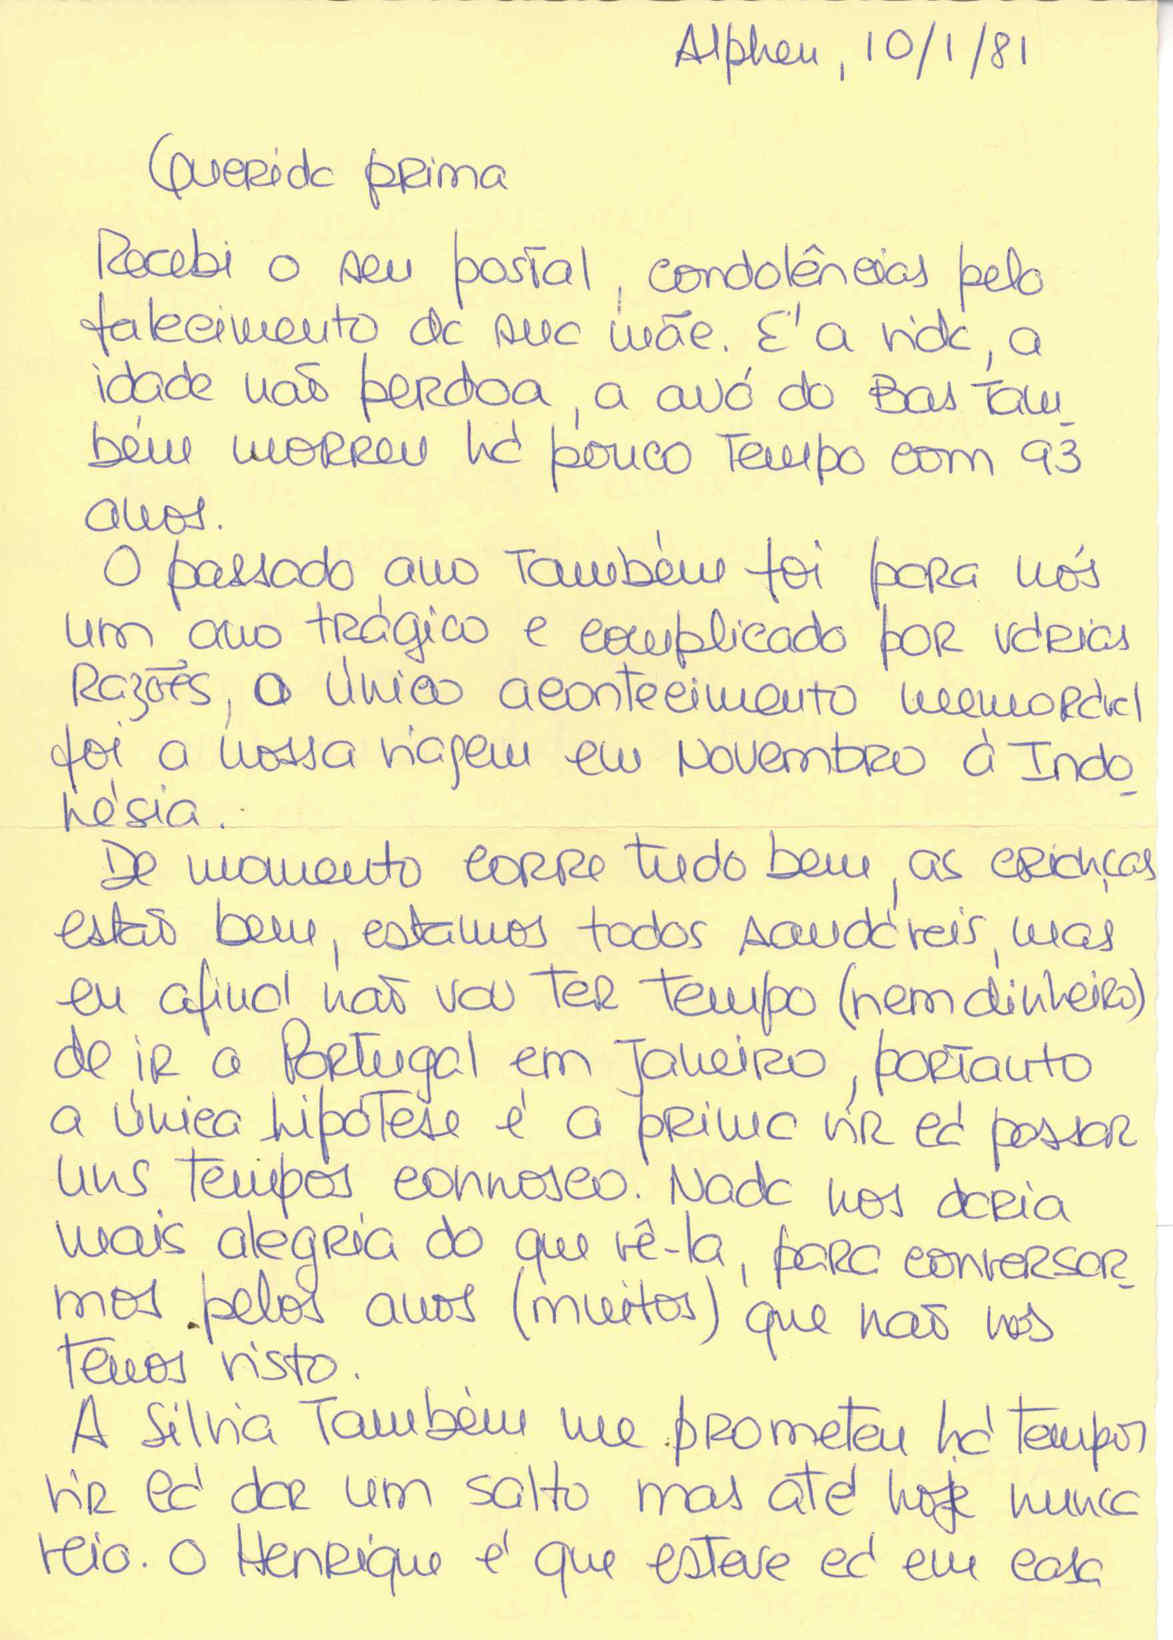 Alphen, 10/1/81
Querida prima
Recebi o seu postal, condolências pelo
falecimento da sua mãe. É a vida, a
idade não perdoa, a avó do Bas tam_
bém morreu há pouco tempo com 93
anos.
O passado ano também foi para nós
um ano trágico e complicado por várias
razões, o único acontecimento memorável
foi a nossa viagem em Novembro à Indo_
nésia.
De momento corre tudo bem, as crianças
estão bem, estamos todos saudáveis, mas
eu afinal não vou ter tempo (nem dinheiro)
de ir a Portugal em Janeiro, portanto
a única hipótese é a prima vir cá passar
uns tempos connosco. Nada nos daria
mais alegria do que vê-la, para conversar_
mos pelos anos (muitos) que não nos
temos visto.
A Silvia também me prometeu há tempos
vir cá dar um salto mas até hoje nunca
veio. O Henrique é que esteve cá em casa